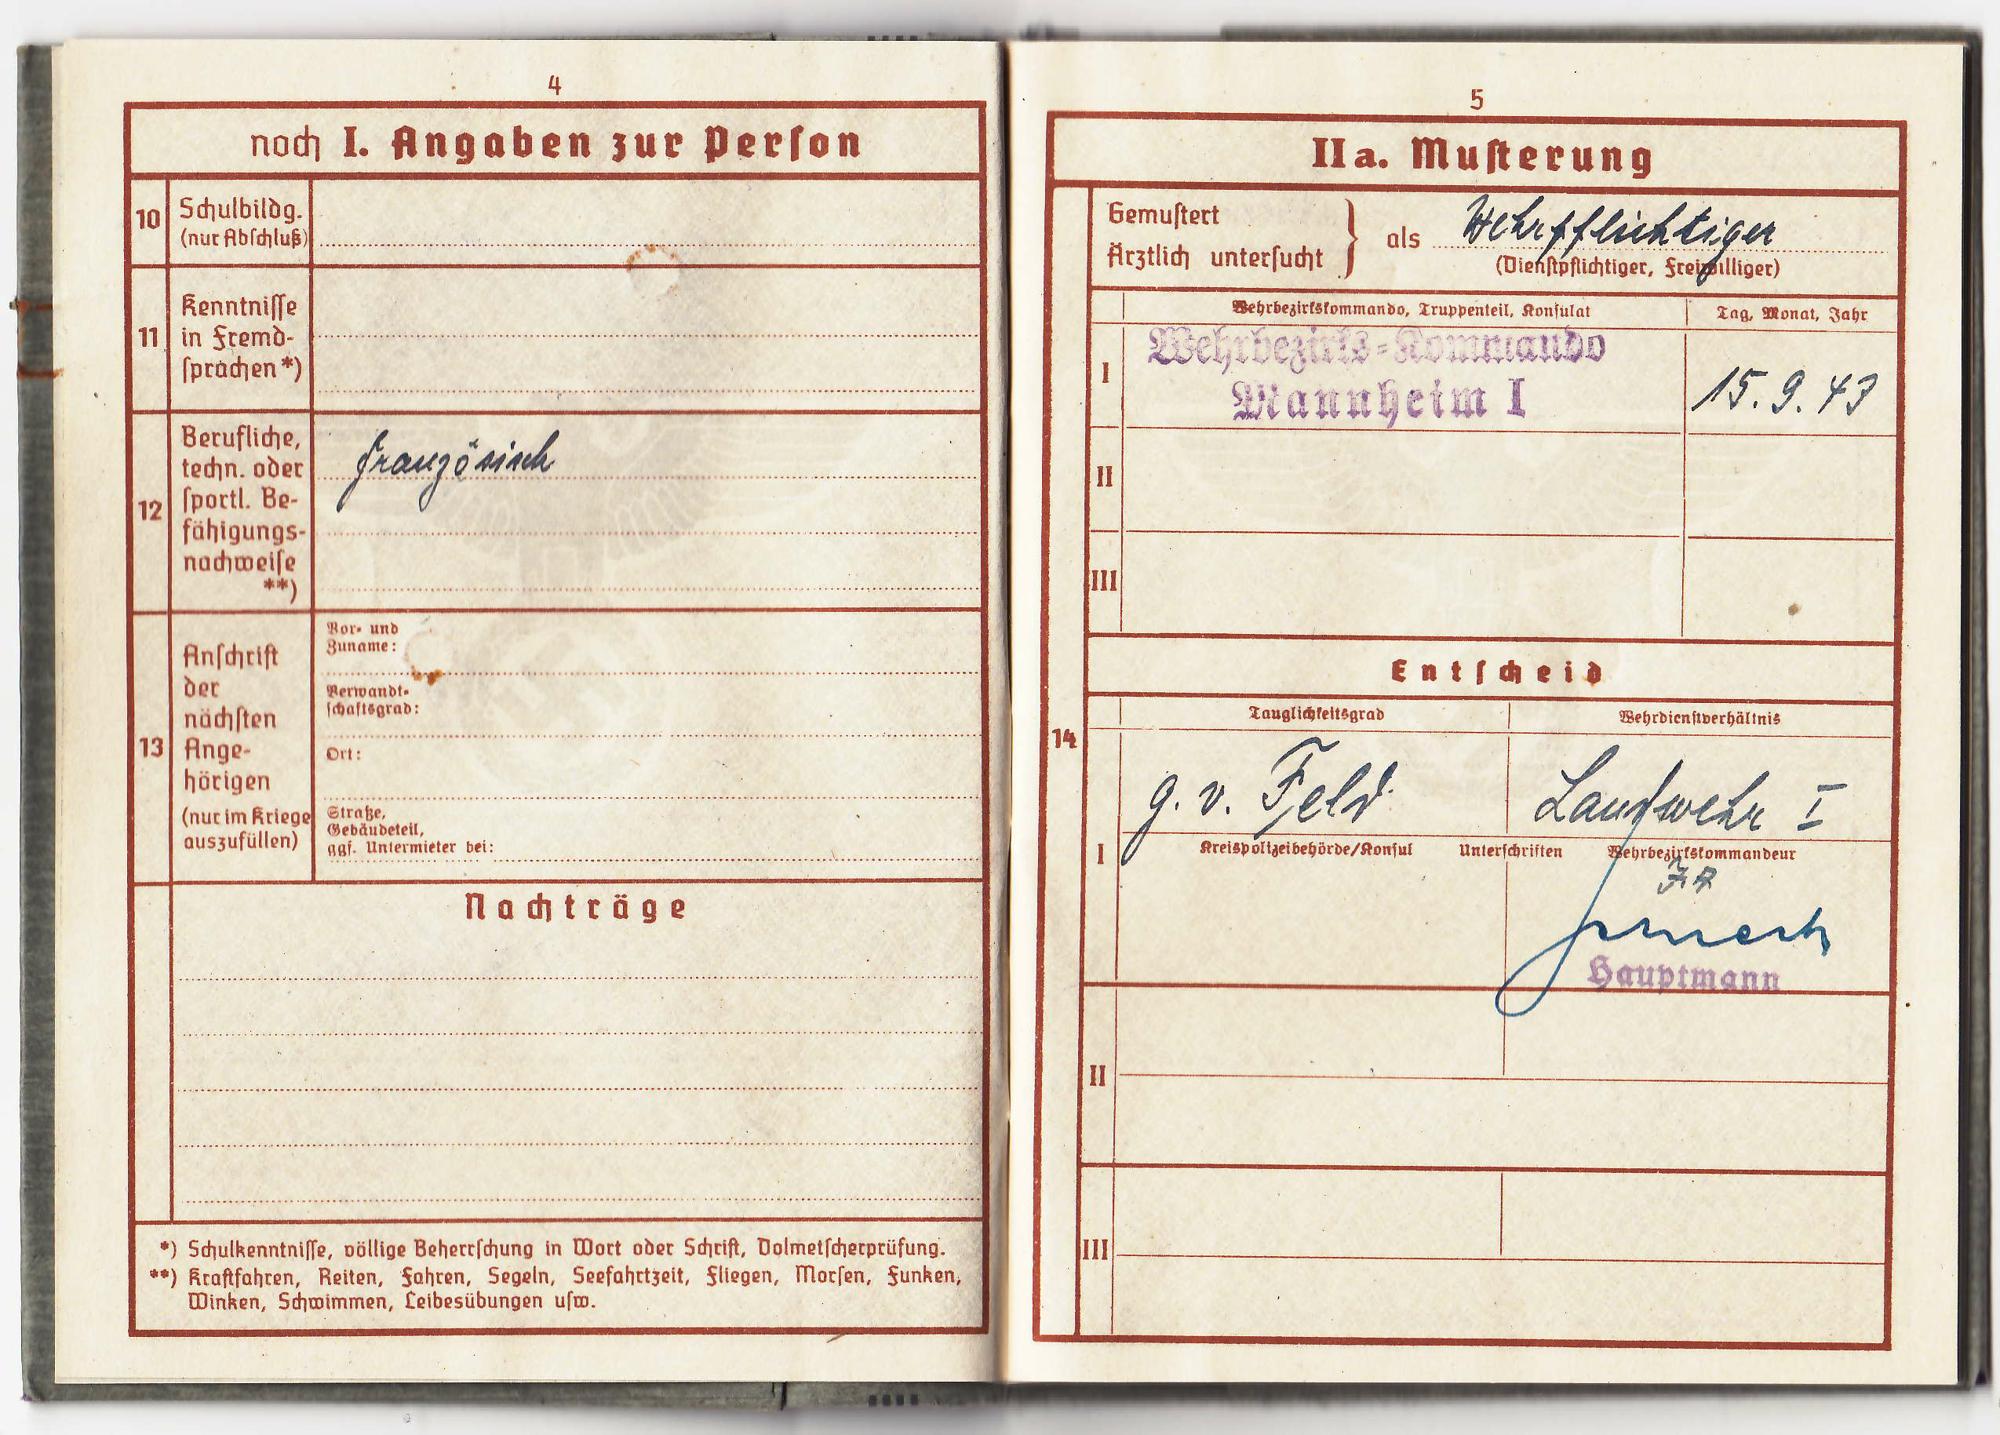 4
noch I. Angaben zur Person
10
Schulbildg.
(nur Abschluß)
11
Kenntnisse
in Fremd-
sprachen*)
12
Berufliche,
techn. oder
sportl. Be-
fähigungs-
nachweise
**)
französisch
13
Anschrift
der
nächsten
Ange-
hörigen
(nur im Kriege
auszufüllen)
Vor- und
Zuname:
Verwandt-
schaftsgrad:
Ort:
Straße,
Gebäudeteil,
ggf. Untermieter bei:
Nachträge
*) Schulkenntnisse, völlige Beherrschung in Wort oder Schrift, Dolmetscherprüfung.
**) Kraftfahren, Reiten, Fahren, Segeln, Seefahrtzeit, Fliegen, Morsen, Funken,
Winken, Schwimmen, Leibesübungen usw.
5
IIa. Musterung
Gemustert
Ärztlich untersucht
als Wehrpflichtiger
(Dienstpflichtiger, Freiwilliger)
Wehrbezirkskommando, Truppenteil, Konsulat
Tag, Monat, Jahr
I
Wehrbezirks-Kommando
Mannheim I
15.9.43
II
III
Entscheid
14
Tauglichkeitsgrad
Wehrdienstverhältnis
I
g. v. Feld
Landwehr I
Kreispolizeibehörde/Konsul Unterschriften Wehrbezirkskommandeur
Hauptmann
II
III